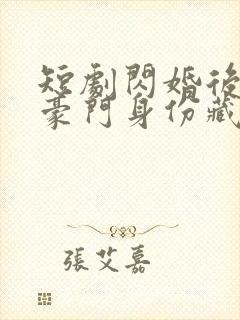 短劇閃婚後
豪門身份藏
張艾嘉